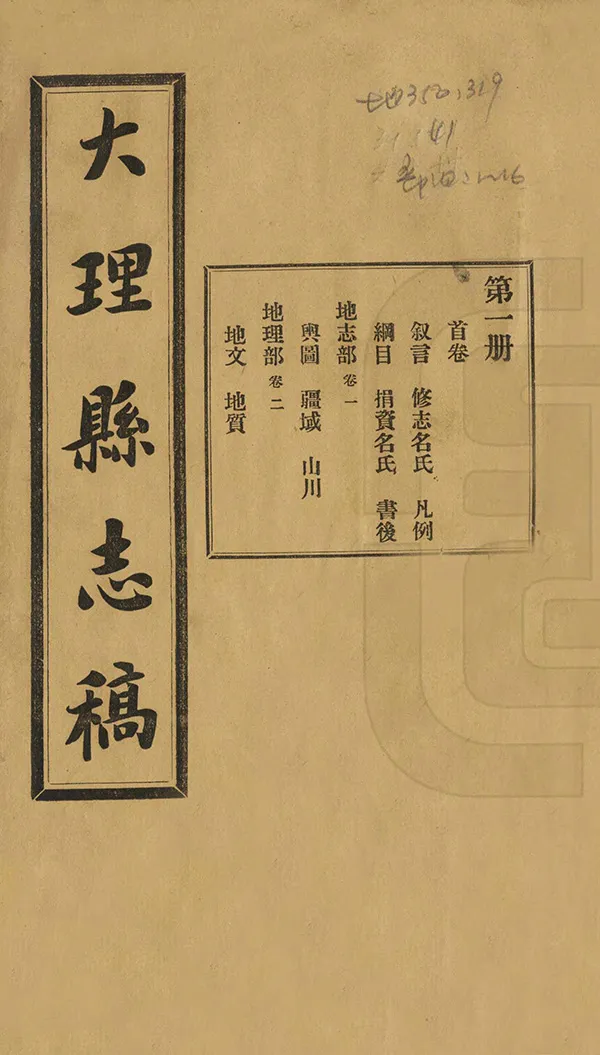 大理縣志稿
第一册
首卷
叙言 修志名氏 凡例
綱目 捐資名氏 書後
地志部 卷一
輿圖 疆域 山川
地理部 卷二
地文 地質
地350:319
41